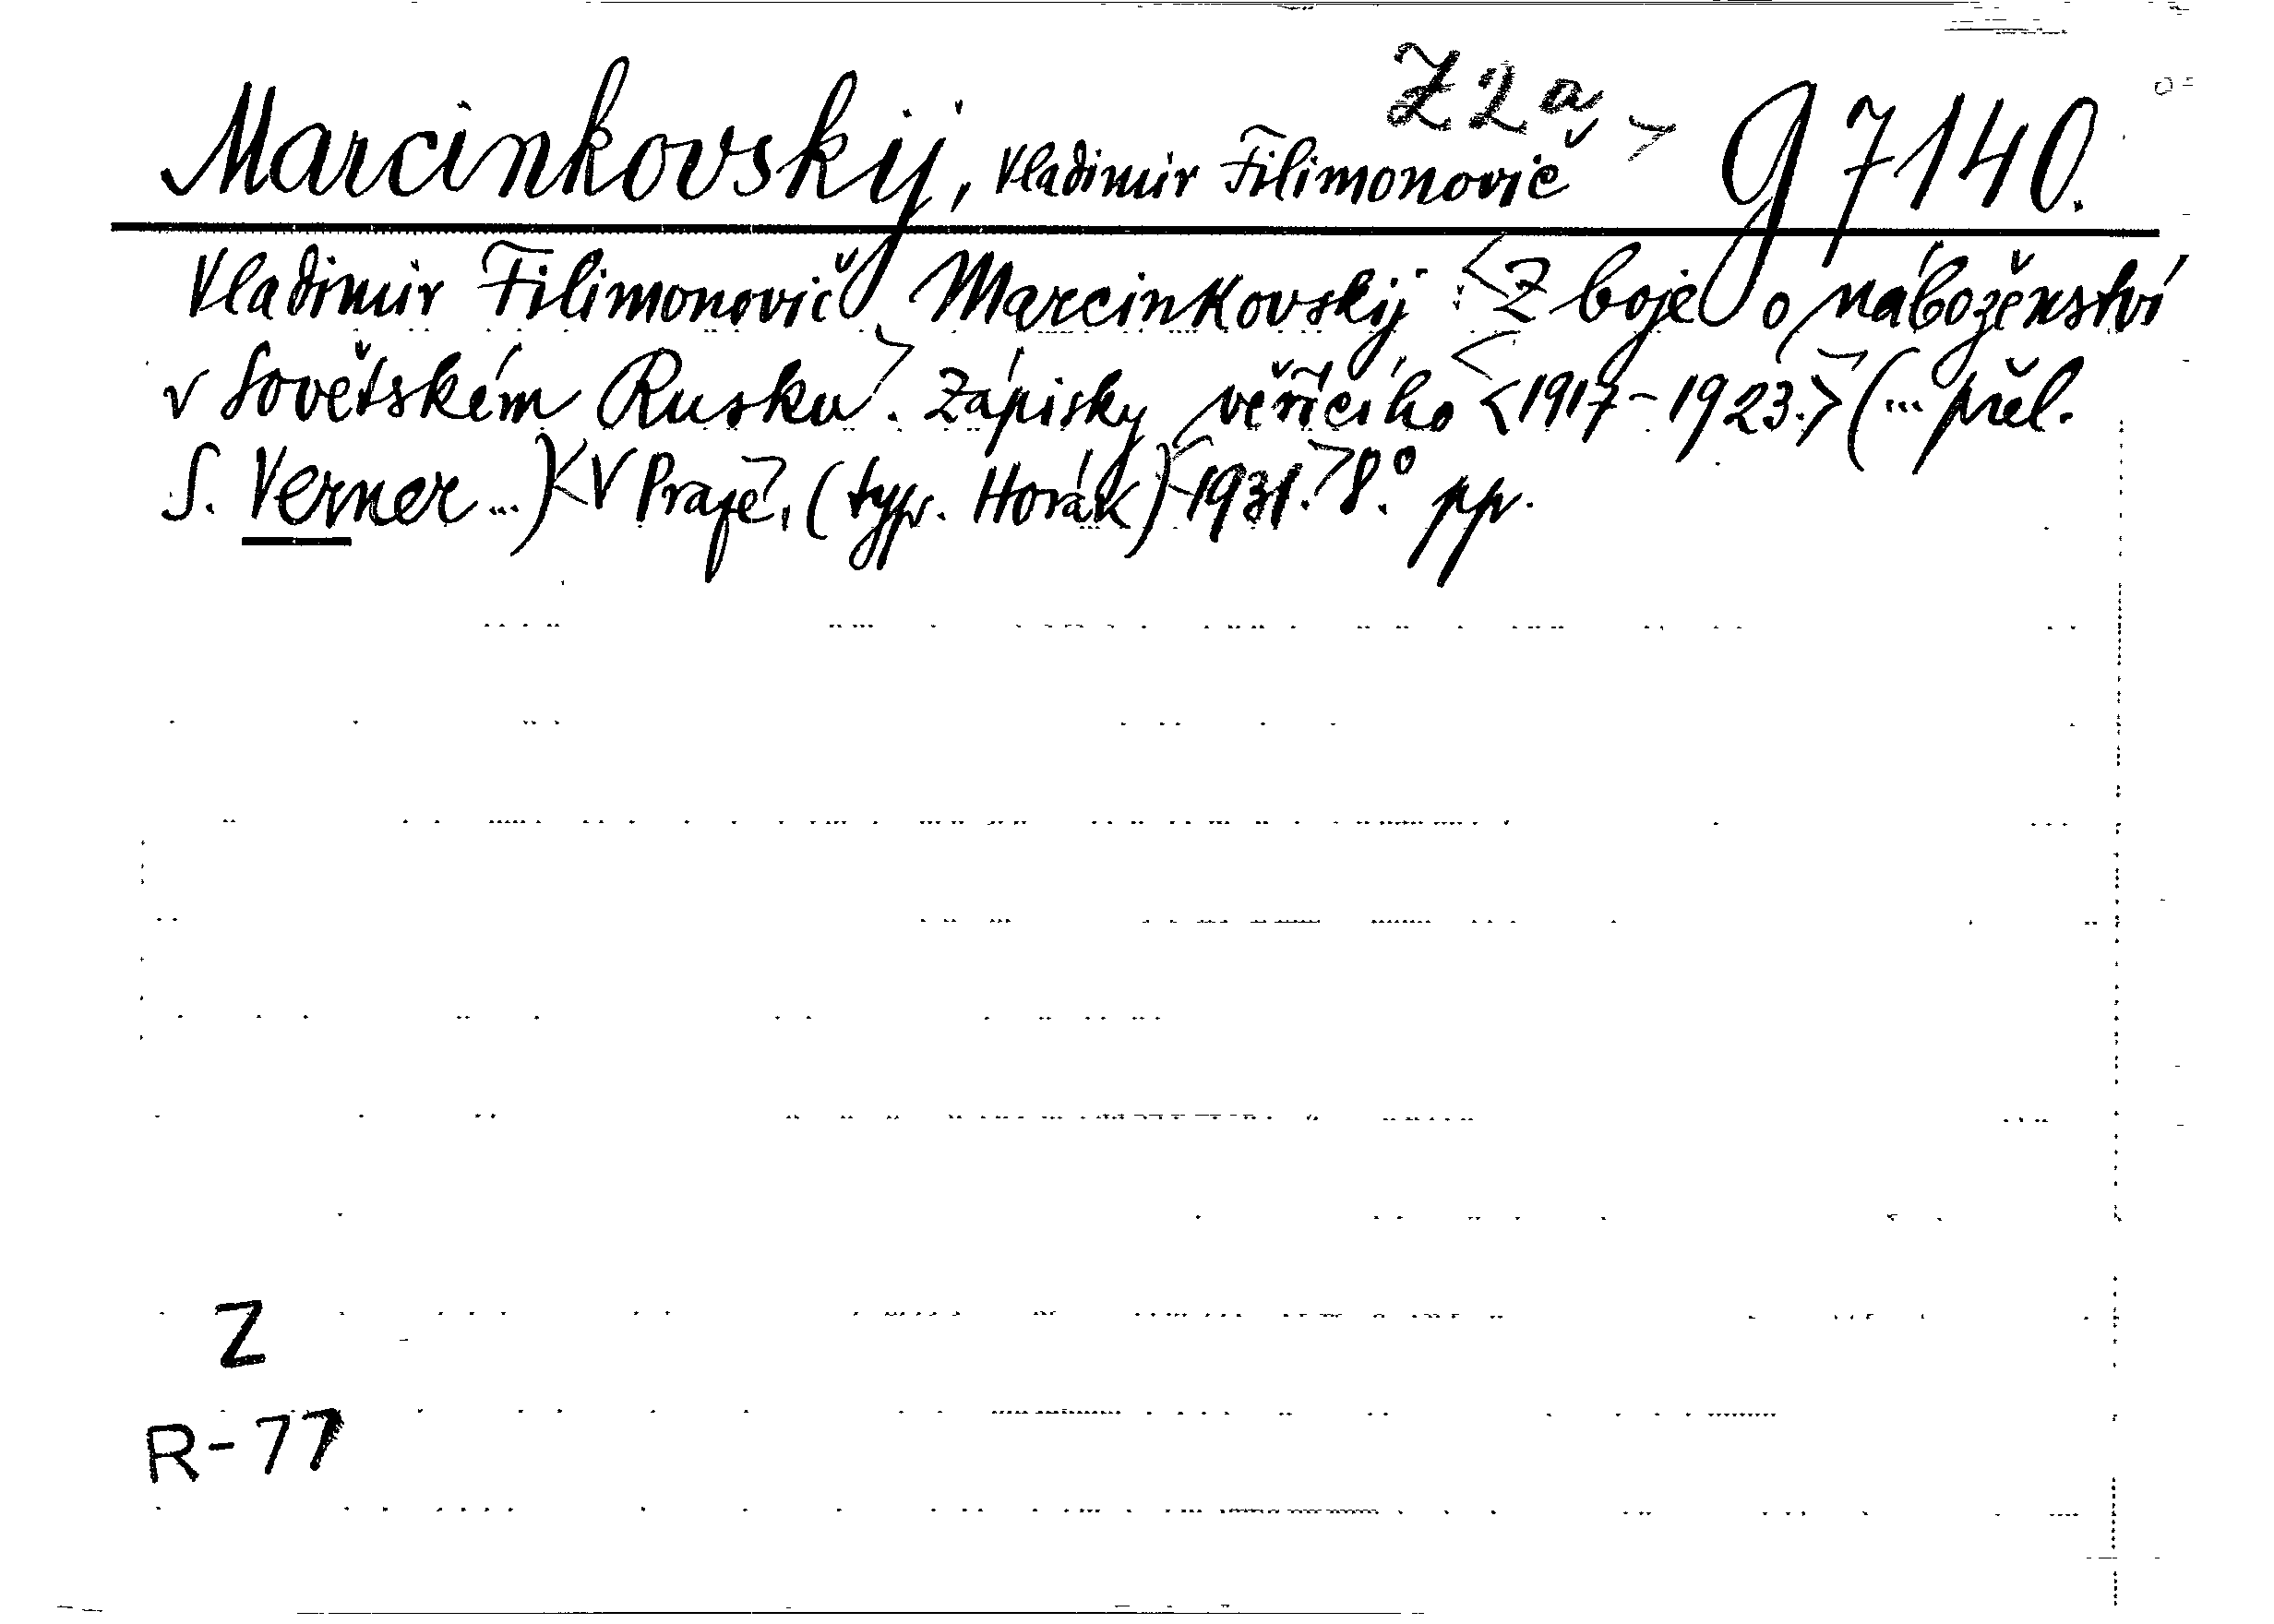 Z2a
Marcinkovskij, Vladimir Filimonovič > g 7140.
Vladimir Filimonovič Marcinkovskij: <Z boje o náboženství
v Sovětském Rusku>. Zápisky věřícího <<1917-1923.>> (... přel.
S. Verner ...) <V Praze>, (typ. Horák) <1931.> 8.° pp.
Z
R-77